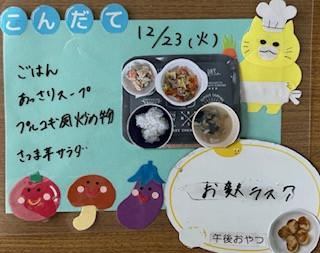 こんだて
12/23(火)
ごはん
あっさりスープ
プルコギ風炒め物
さつま芋サラダ
お麩ラスク
午後おやつ